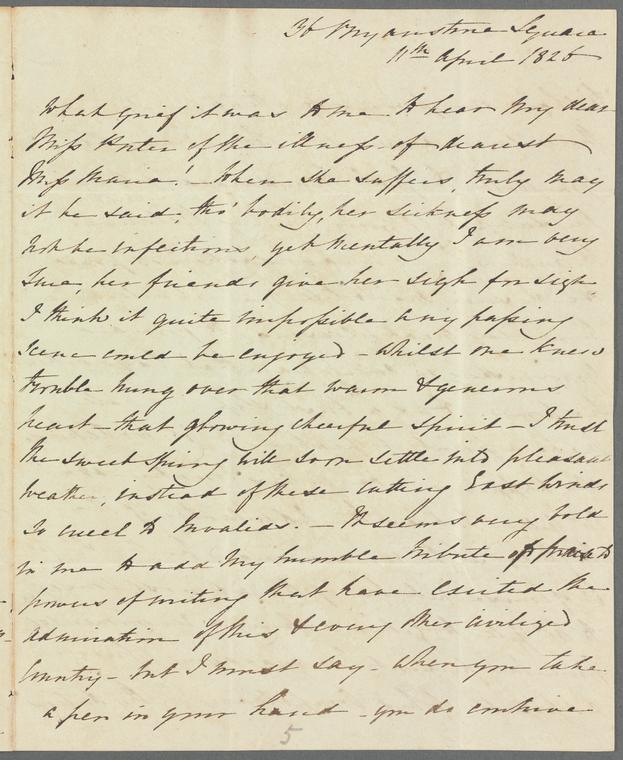 36 Bryanstone Square
11th April 1826
What grief it was to me to hear my dear
Miss Porter of the illness of dearest
Miss Maria! – When she suffers, truly may
it be said, tho' bodily, her sickness may
not be infectious, yet mentally I am very
sure, her friends give her sigh for sigh.
I think it quite impossible any passing
scene could be enjoyed – whilst one knew
trouble hung over that warm & generous
heart – that glowing chearful spirit – I trust
the sweet Spring will soon settle into pleasant
weather, instead of these cutting East Winds
so cruel to Invalids. – It seems very bold
in me to add my humble tribute of praise to
powers of writing that have excited the
admiration of this & every other civilized
Country – but I must say – when you take
a pen in your hand – you do contrive
5